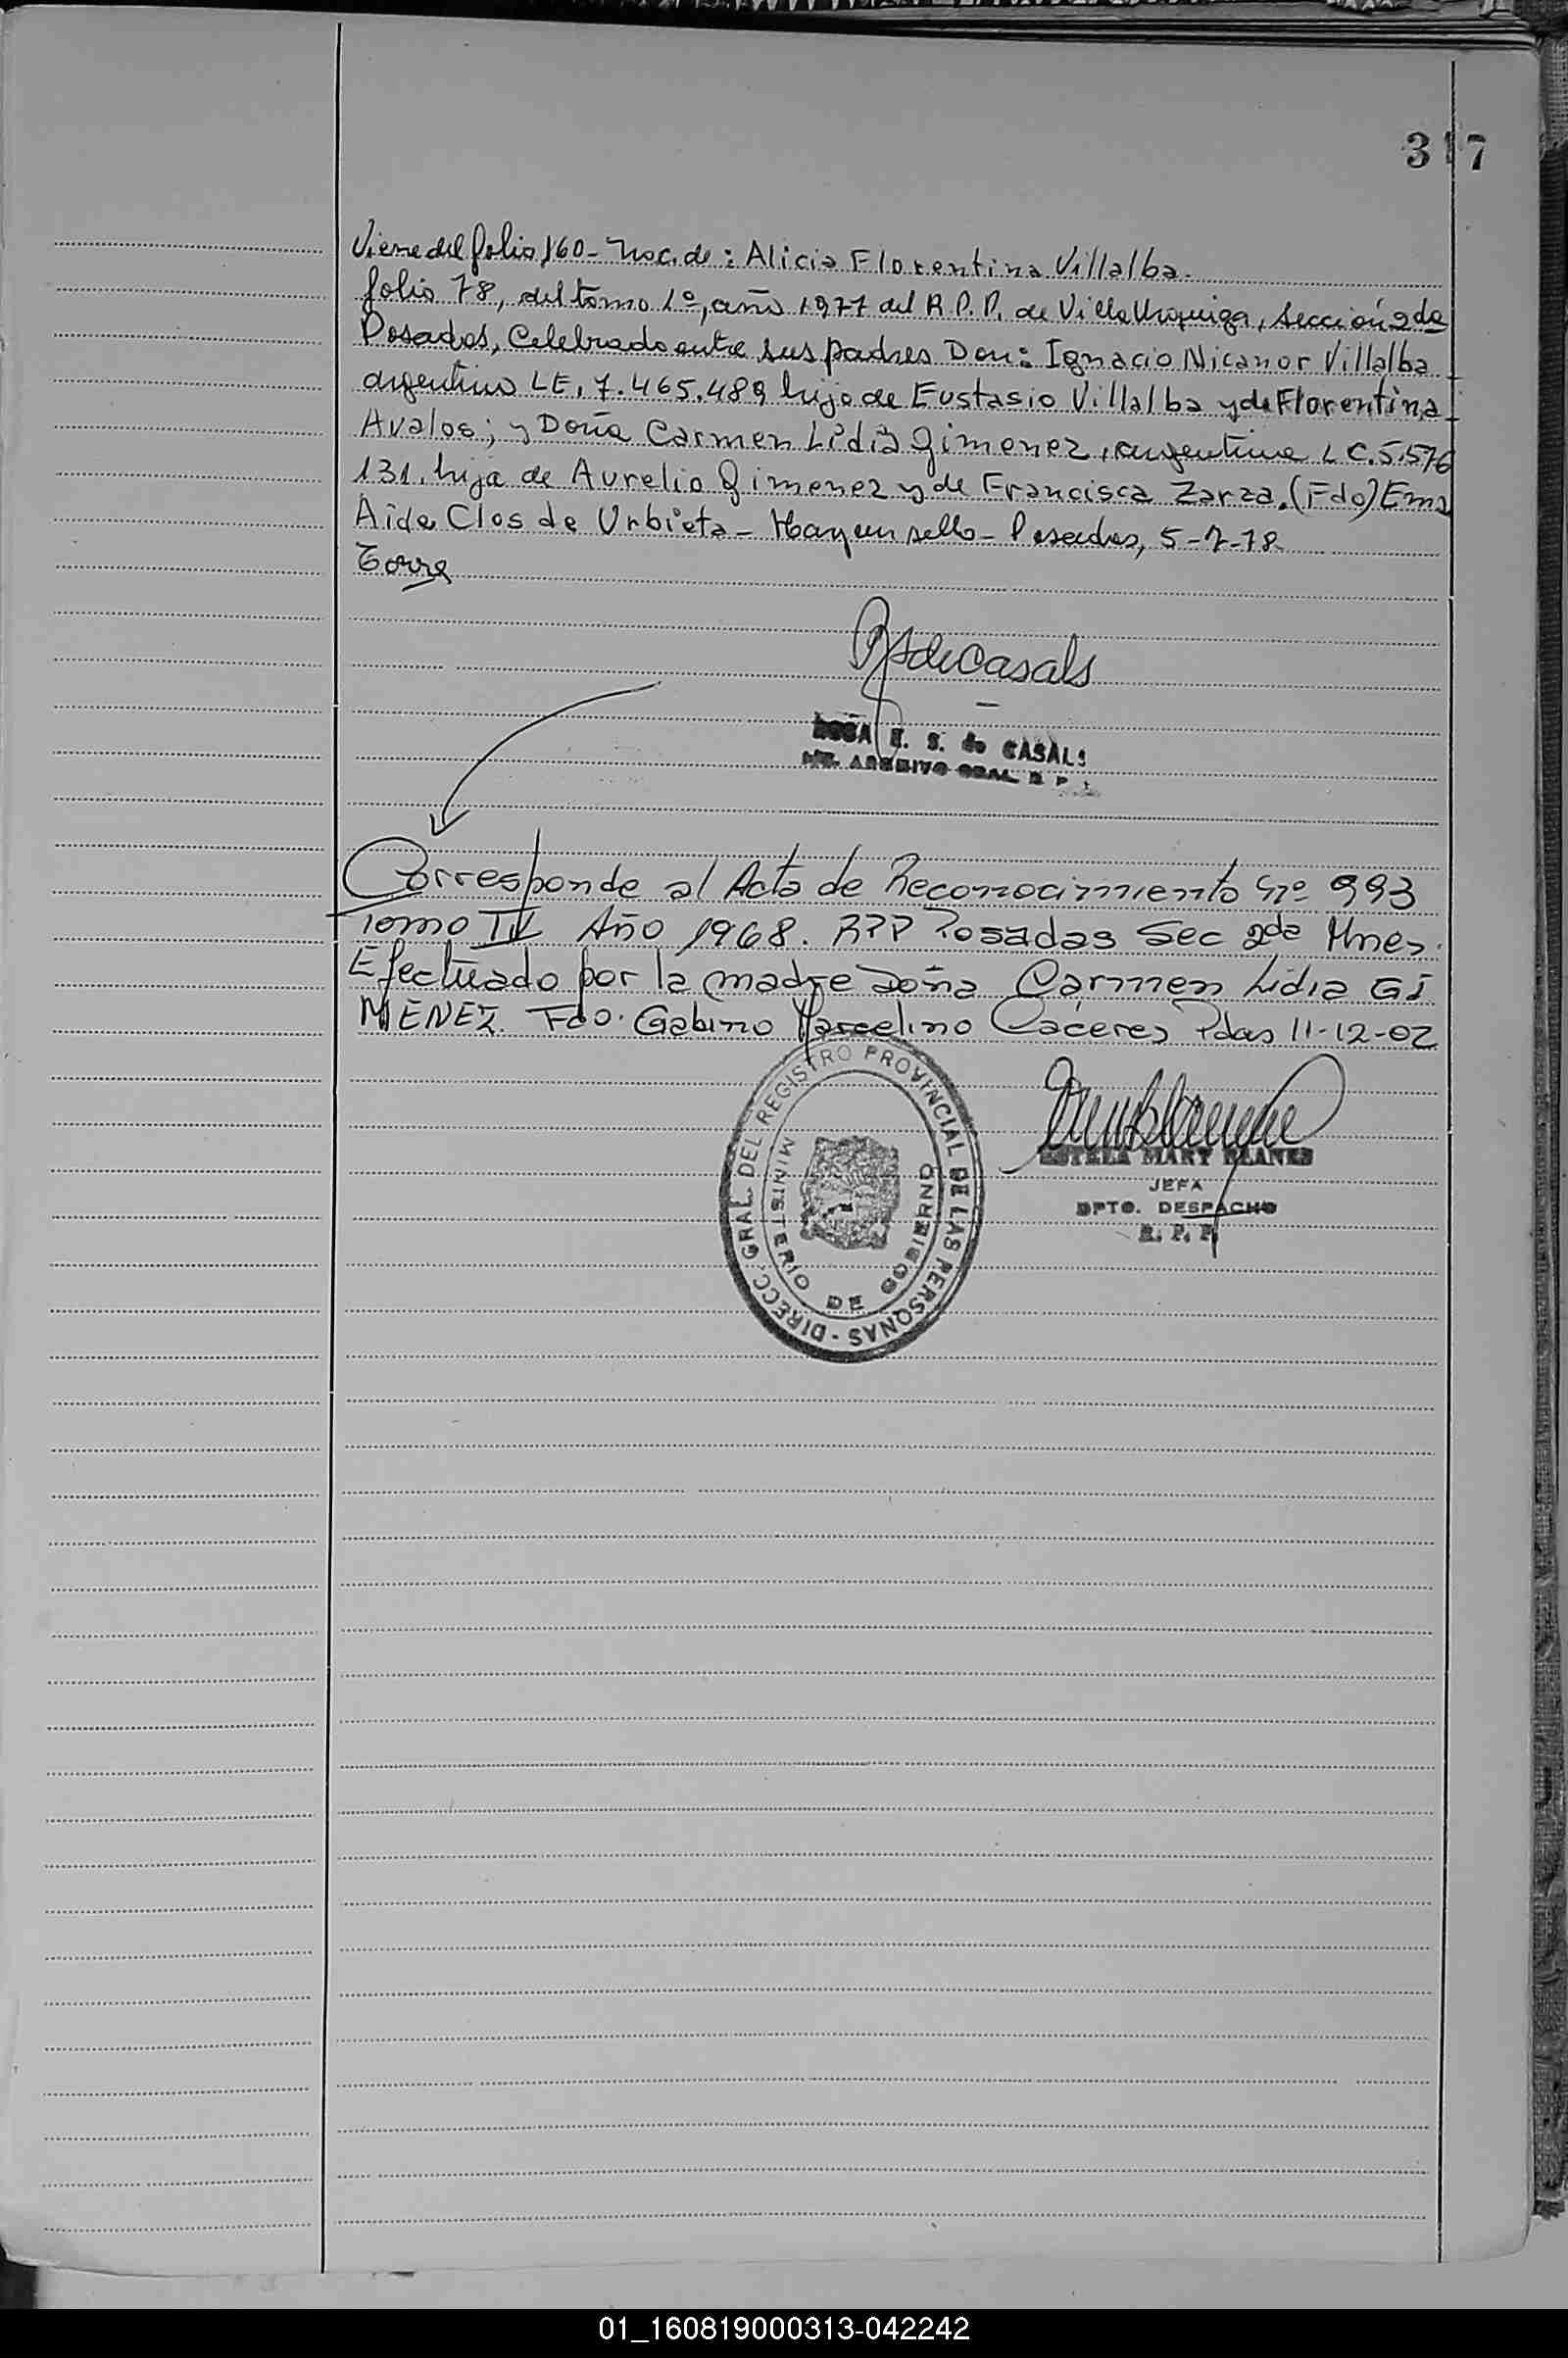 317
Viene del folio 160- Nac. de: Alicia Florentina Villalba.
folio 78, del tomo 1º, año 1977 del R.P.P. de Villa Urquiza, Sección 2da
Posadas, Celebrado entre sus padres Don: Ignacio Nicanor Villalba
argentino LE. 7.465.489 hijo de Eustasio Villalba y de Florentina
Avalos; y Doña Carmen Lidia Gimenez, argentina LC. 5.576
131. hija de Aurelio Gimenez y de Francisca Zarza. (Fdo) Ema
Aida Clos de Urbieta - Hay un sello - Posadas, 5-7-78
Torre
E. S. de CASALS
ARCHIVO GRAL. R. P.
Corresponde al Acta de Reconocimiento Nº 993
Tomo IV Año 1968. RPP Posadas Sec 2da Mnes.
Efectuado por la madre Doña Carmen Lidia GI
MENEZ. Fdo. Gabino Marcelino Caceres Pdas 11-12-02
DIRECC. GRAL. DEL REGISTRO PROVINCIAL DE LAS PERSONAS -
MINISTERIO DE GOBIERNO
ESTELA MARY BLANES
JEFA
DPTO. DESPACHO
R. P. P.
01_160819000313-042242